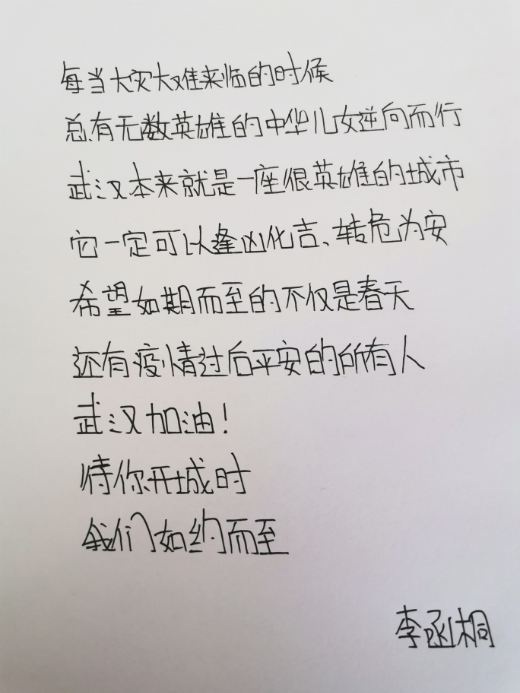 每当大灾大难来临的时候
总有无数英雄的中华儿女逆向而行
武汉本来就是一座很英雄的城市
它一定可以逢凶化吉、转危为安
希望如期而至的不仅是春天
还有疫情过后平安的所有人
武汉加油!
待你开城时
我们如约而至
李函桐